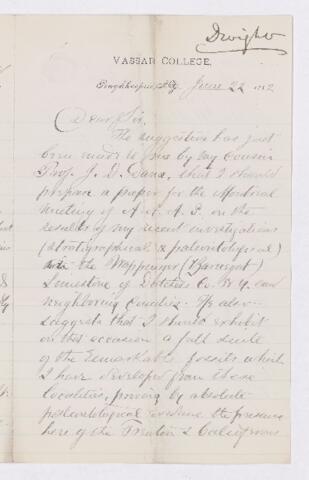 Dwight
VASSAR COLLEGE,
Poughkeepsie, N.Y. June 22 1882
Dear Sir,
The suggestion has just
been made to me by my cousin
Prof. J. D. Dana, that I should
prepare a paper for the Montreal
Meeting of A. A. A. S. on the
results of my recent investigations
(stratigraphical & paleontological)
in the Wappinger (Barnegat)
Limestone of Dutchess Co. N.Y. and
neighboring counties. He also
suggests that I should exhibit
on that occasion a full suite
of the remarkable fossils which
I have developed from these
localities, proving by absolute
paleontological evidence the presence
here of the Trenton & Calciferous